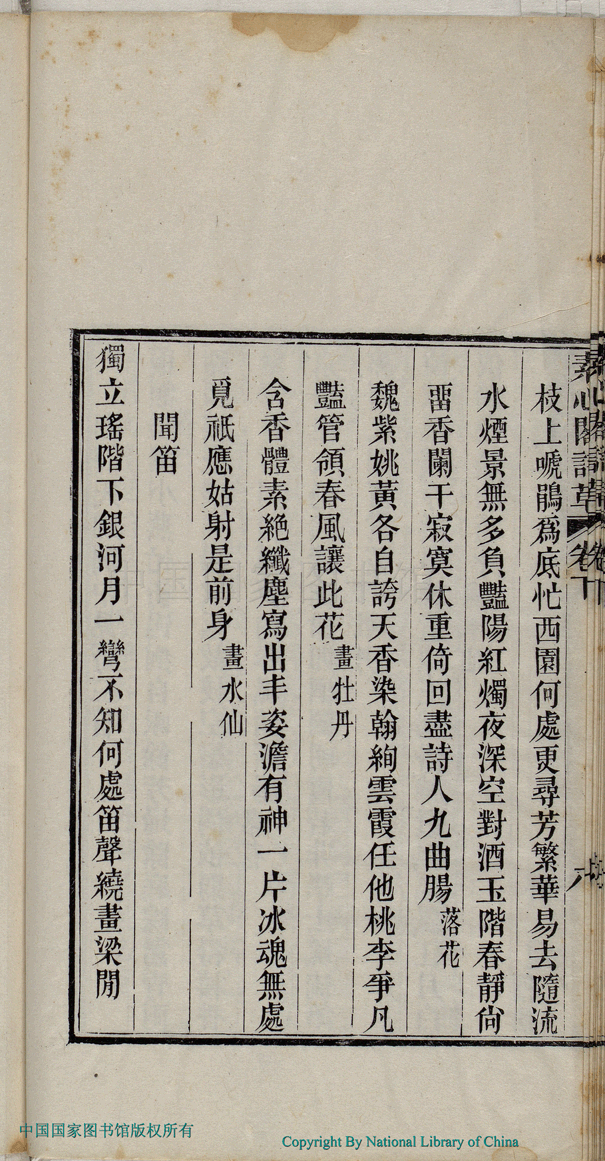 素心閣詩草 卷下
枝上嗁鵑爲底忙西園何處更尋芳繁華易去隨流
水煙景無多負豔陽紅燭夜深空對酒玉階春靜尙
畱香闌干寂寞休重倚回盡詩人九曲腸落花
魏紫姚黃各自誇天香染翰絢雲霞任他桃李爭凡
豔管領春風讓此花畫牡丹
含香體素絶纖塵寫出丰姿澹有神一片冰魂無處
覓祇應姑射是前身畫水仙
聞笛
獨立瑤階下銀河月一彎不知何處笛聲繞畫梁閒
中国国家图书馆版权所有
Copyright By National Library of China